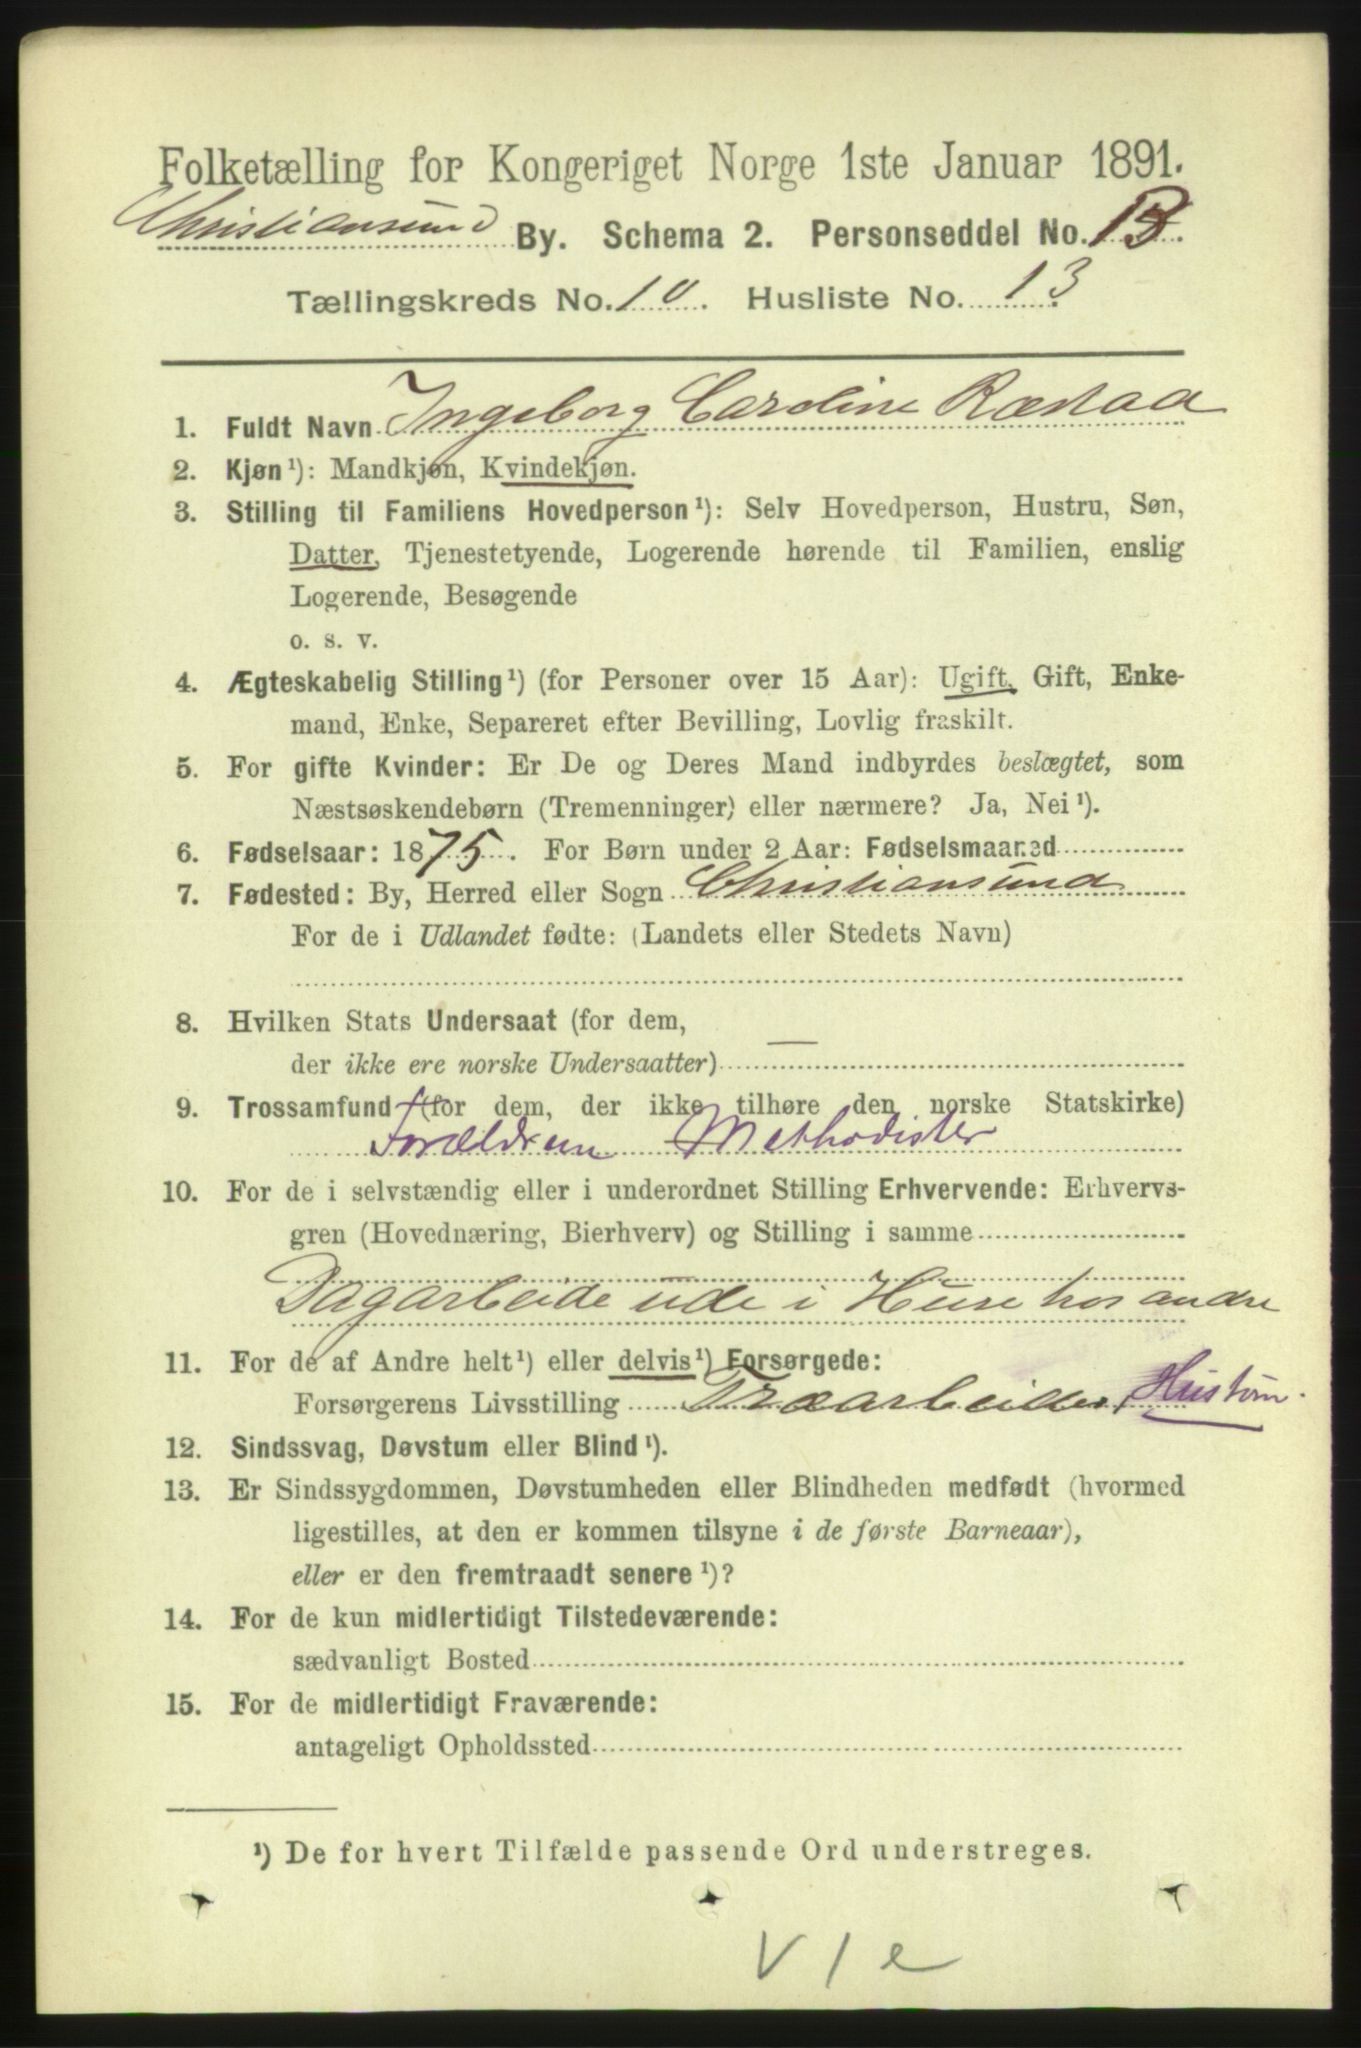 Folketælling for Kongeriget Norge 1ste Januar 1891.
Christiansund By. Schema 2. Personseddel No.
Tællingskreds No. 10. Husliste No. 13.
1. Fuldt Navn Ingeborg Caroline Ræstaa
2. Kjøn¹): Mandkjøn, Kvindekjøn.
3. Stilling til Familiens Hovedperson¹): Selv Hovedperson, Hustru, Søn,
Datter, Tjenestetyende, Logerende hørende til Familien, enslig
Logerende, Besøgende
o. s. v.
4. Ægteskabelig Stilling¹) (for Personer over 15 Aar): Ugift, Gift, Enke-
mand, Enke, Separeret efter Bevilling, Lovlig fraskilt.
5. For gifte Kvinder: Er De og Deres Mand indbyrdes beslægtet, som
Næstsøskendebørn (Tremenninger) eller nærmere? Ja, Nei¹).
6. Fødselsaar: 1875. For Børn under 2 Aar: Fødselsmaaned
7. Fødested: By, Herred eller Sogn Christiansund
For de i Udlandet fødte: (Landets eller Stedets Navn)
8. Hvilken Stats Undersaat (for dem,
der ikke ere norske Undersaatter) —
9. Trossamfund (for dem, der ikke tilhøre den norske Statskirke)
Forældrene Methodister
10. For de i selvstændig eller i underordnet Stilling Erhvervende: Erhvervs-
gren (Hovednæring, Bierhverv) og Stilling i samme
Dagarbeide ude i Huse hos andre
11. For de af Andre helt¹) eller delvis¹) Forsørgede:
Forsørgerens Livsstilling Træarbeider,
12. Sindssvag, Døvstum eller Blind¹).
13. Er Sindssygdommen, Døvstumheden eller Blindheden medfødt (hvormed
ligestilles, at den er kommen tilsyne i de første Barneaar),
eller er den fremtraadt senere¹)?
14. For de kun midlertidigt Tilstedeværende:
sædvanligt Bosted
15. For de midlertidigt Fraværende:
antageligt Opholdssted
¹) De for hvert Tilfælde passende Ord understreges.
V 1 e